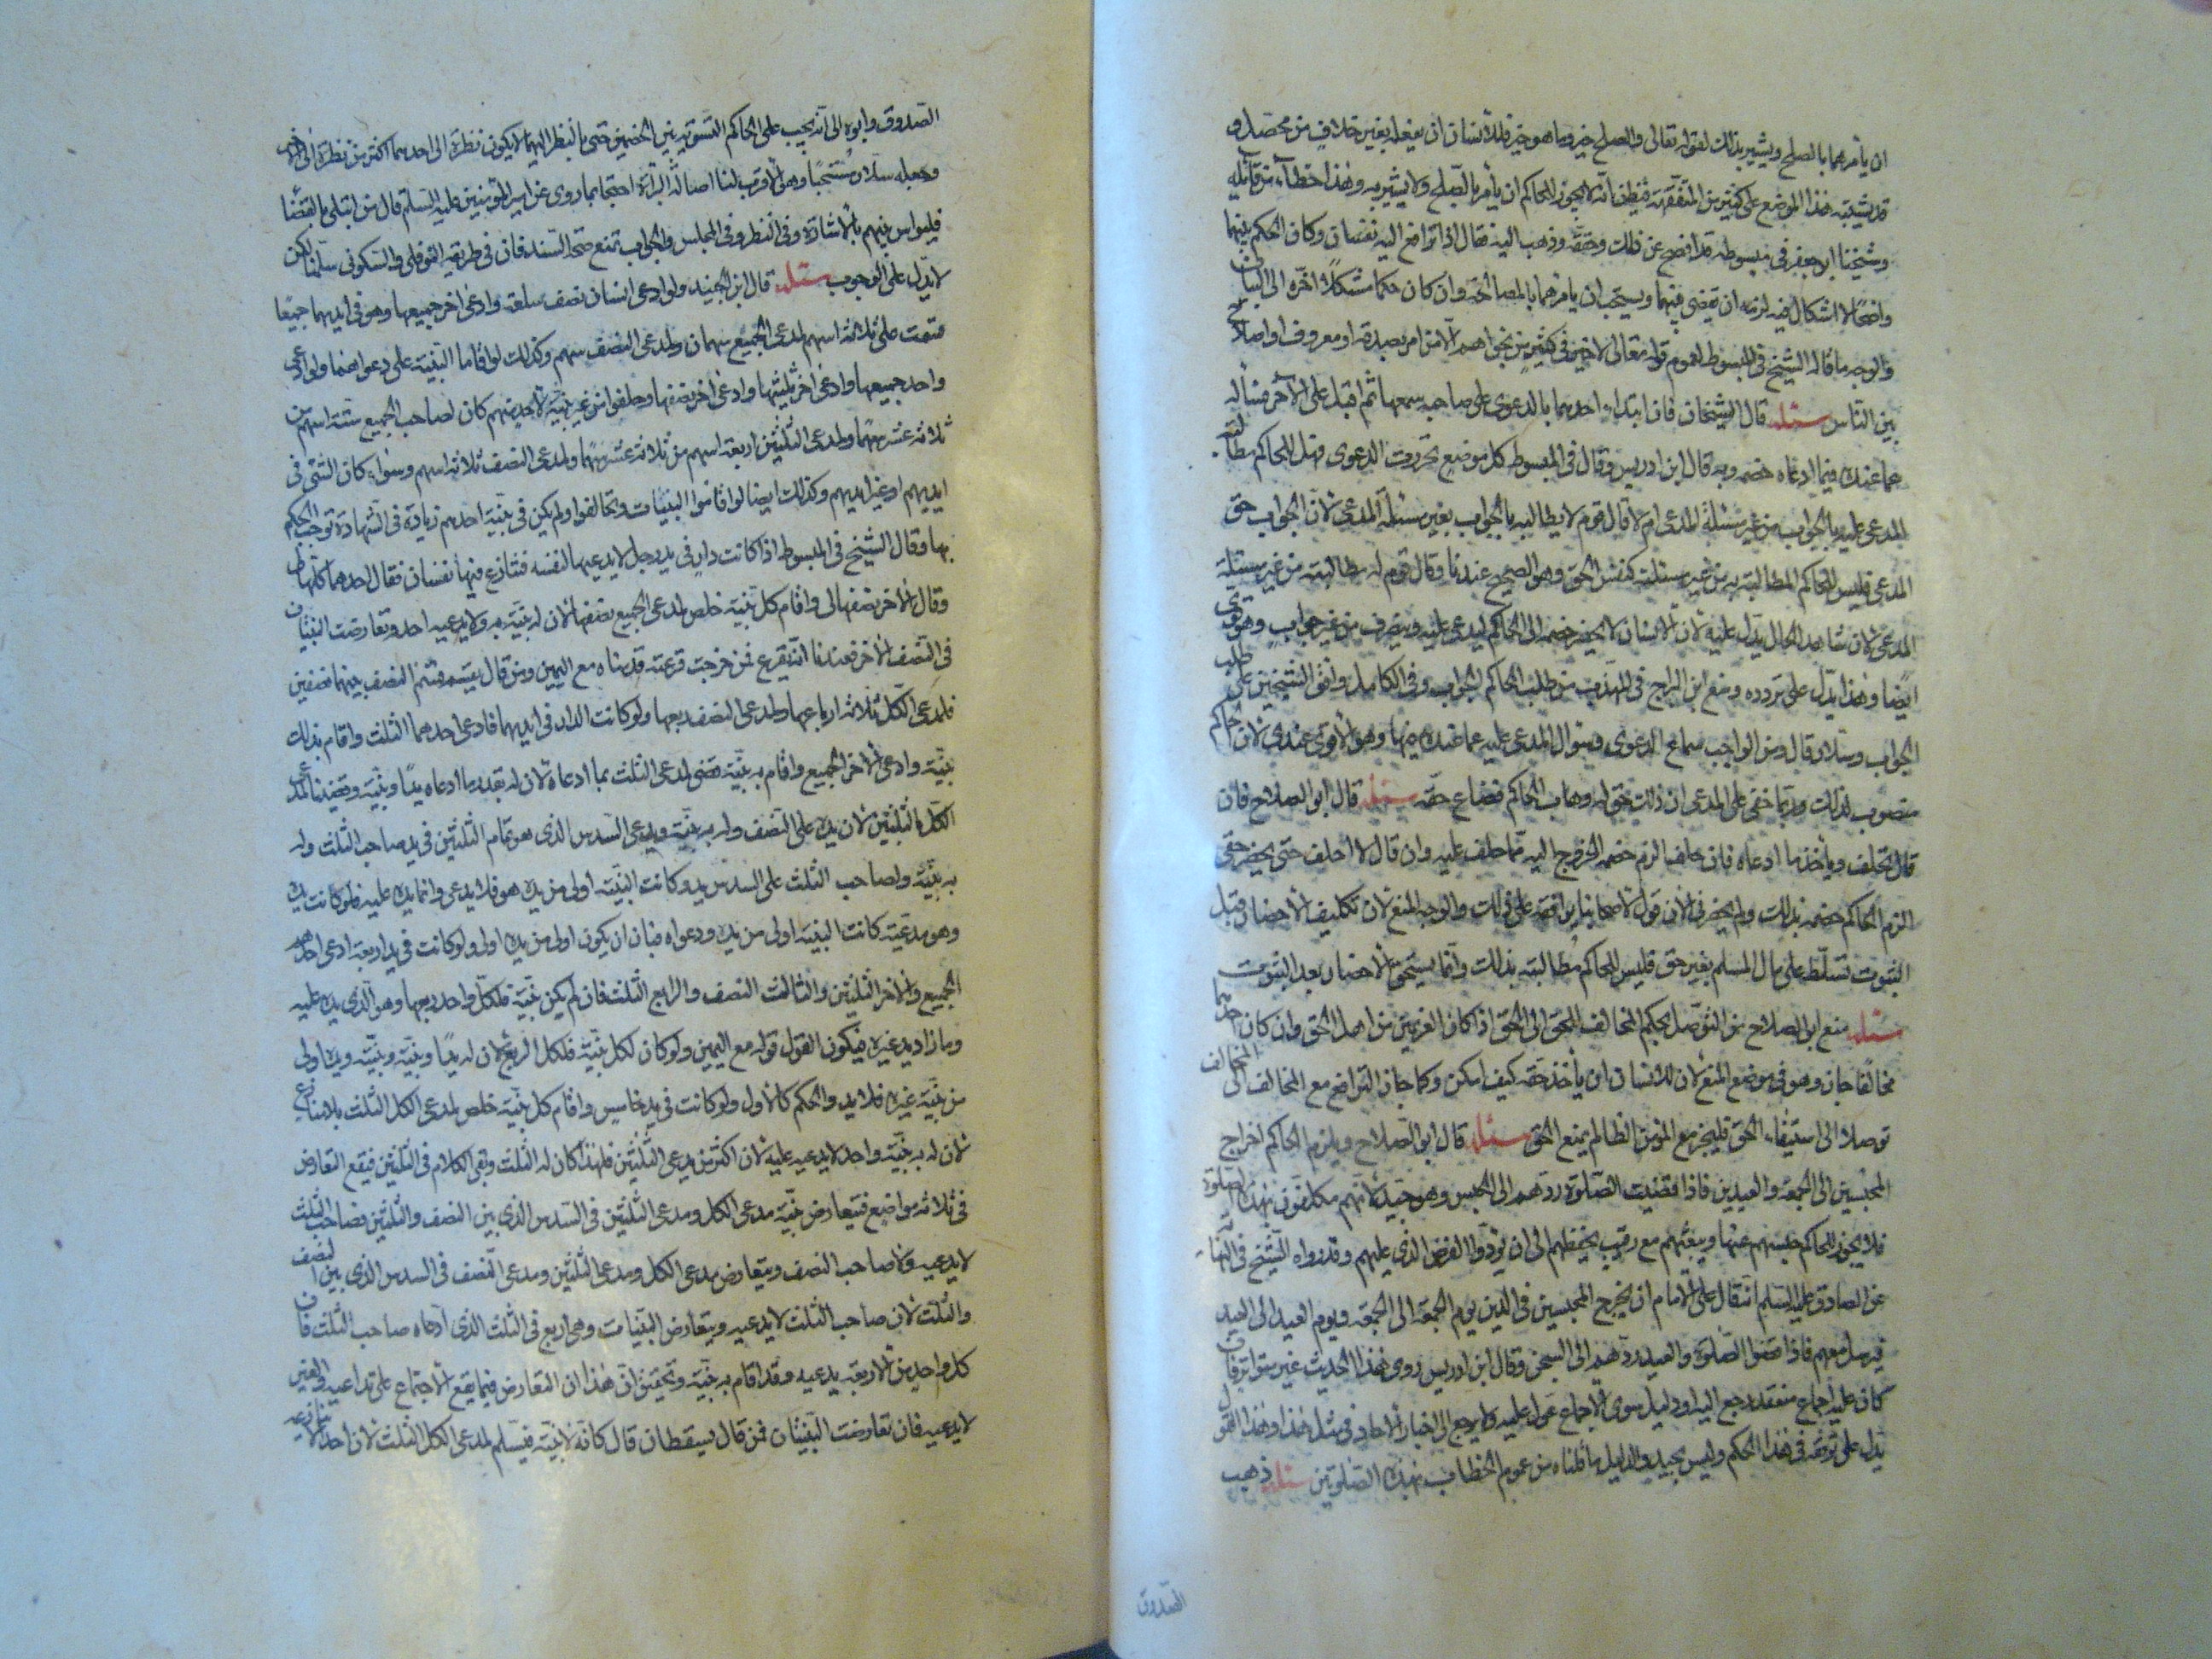 ان يأمرهما بالصلح ويشير بذلك لقوله تعالى والصلح خير وما هو خير فللانسان ان يفعله بغير خلاف من محصل و
قد يشتبه هذا الموضع على كثير من المتفقهة فيظن انه لا يجوز للحاكم ان يأمر بالصلح ولا يشير به وهذا خطأ من قائله
وشيخنا ابو جعفر في مبسوطه قد افصح عن ذلك وحققه وذهب اليه فقال اذا ترافع اليه نفسان وكان الحكم بينهما
واضحا لا اشكال فيه لزمه ان يقضي بينهما ويستحب ان يأمرهما بالمصالحة وان كان حكما مشكلا اخره الى البيان
والوجه ما قاله الشيخ في المبسوط لعموم قوله تعالى لا خير في كثير من نجواهم الا من امر بصدقة او معروف او اصلاح
بين الناس مسئلة قال الشيخان فان ابتداء احدهما بالدعوى على صاحبه سمعها ثم اقبل على الآخر فسأله
عما عنده فيما ادعاه خصمه وبه قال ابن ادريس وقال في المبسوط كل موضع تحررت الدعوى فهل للحاكم مطالبة
المدعى عليه بالجواب من غير مسئلة المدعي ام لا قال قوم لا يطالبه بالجواب بغير مسئلة المدعي لان الجواب حق
المدعي فليس للحاكم المطالبة به من غير مسئلته كنفس الحق وهو الصحيح عندنا وقال قوم له مطالبته من غير مسئلة
المدعي لان شاهد الحال يدل عليه لان الانسان لا يحضر خصمه الى الحاكم ليدعي عليه وينصرف من غير جواب وهو قوي
ايضا وهذا يدل على تردده ومنع ابن البراج في المهذب من طلب الحاكم الجواب وفي الكامل وافق الشيخين على طلب
الجواب وسلار قال ومن الواجب سماع الدعوى وسؤال المدعى عليه عما عنده فيها وهو الاقوى عندي لان الحاكم
منصوب لذلك وربما خفي على المدعي ان ذلك حق له وهاب الحاكم فضاع حقه مسئلة قال ابو الصلاح فان
قال تحلف ويأخذ ما ادعاه فان حلف الزم خصمه الخروج اليه مما حلف عليه وان قال لا احلف حتى يحضر حقي
الزم الحاكم خصمه بذلك ولم يحضرني الآن قول لاصحابنا يوافقه على ذلك والوجه المنع لان تكليف الاحضار قبل
الثبوت تسلط على مال المسلم بغير حق فليس للحاكم مطالبته بذلك وانما يستحق الاحضار بعد الثبوت
مسئلة منع ابو الصلاح من التوصل بحكم المخالف للحق الى الحق اذا كان الغريمين من اهل الحق وان كان احدهما
مخالفا جاز وهو في موضع المنع لان للانسان ان يأخذ حقه كيف امكن وكما جاز الترافع مع المخالف الى المخالف
توصلا الى استيفاء الحق فليجز مع المؤمن الظالم يمنع الحق مسئلة قال ابو الصلاح ويلزم الحاكم اخراج
المحبسين الى الجمعة والعيدين فاذا قضيت الصلوة ردهم الى الحبس وهو جيد لانهم مكلفون بهذه الصلوة
فلا يجوز للحاكم حبسهم عنها ويبعثهم مع رقيب يحفظهم الى ان يؤدوا الفرض الذي عليهم وقد رواه الشيخ في النهاية
عن الصادق عليه السلم انه قال على الامام ان يخرج المحبسين في الدين يوم الجمعة الى الجمعة ويوم العيد الى العيد
فيرسل معهم فاذا قضوا الصلوة والعيد ردهم الى السجن وقال ابن ادريس روى هذا الحديث غير متواتر فان
كان عليه اجماع منعقد رجع اليه او دليل سوى الاجماع عول عليه ولا يرجع الى اخبار الآحاد في مثل هذا وهذا القول
يدل على توقفه في هذا الحكم وليس بجيد والدليل ما قلناه من عموم الخطاب بهذه الصلوتين مسئلة ذهب
الصدوق
الصدوق وابوه الى انه يجب على الحاكم التسوية بين الخصمين حتى بالنظر اليهما لا يكون نظره الى احدهما اكثر من نظره الى الآخر
وجعله سلار مستحبا وهو الاقرب لنا اصالة البرائة احتجا بما روى عن امير المؤمنين عليه السلم قال من ابتلى بالقضا
فليواس بينهم بالاشارة وفي النظر وفي المجلس والجواب بمنع صحة السند فان في طريقه النوفلي والسكوني سلمنا لكن
لا يدل على الوجوب مسئلة قال ابن الجنيد ولو ادعى انسان نصف سلعة وادعى اخر جميعها وهو في ايديهما جميعا
قسمت على ثلاثة اسهم لمدعي الجميع سهمان ولمدعي النصف سهم وكذلك لو اقاما البينة على دعواهما ولو ادعى
واحد جميعها وادعى اخر ثلثيها وادعى اخر نصفها وحلفوا من غير بينة لاحد منهم كان لصاحب الجميع ستة اسهم من
ثلاثة عشر سهما ولمدعي الثلثين اربعة اسهم من ثلاثة عشر سهما ولمدعي النصف ثلاثة اسهم وسواء كان الشئ في
ايديهم او غير ايديهم وكذلك ايضا لو اقاموا البينات وتحالفوا ولم يكن في بينة احدهم زيادة في الشهادة توجب الحكم
بها وقال الشيخ في المبسوط اذا كانت دار في يد رجل لا يدعيها لنفسه فتنازع فيها نفسان فقال احدهما كلها لي
وقال الآخر نصفها لي واقام كل بينة خلص لمدعي الجميع نصفها لان له بينة به ولا يدعيه احد وتعارضت البينتان
في النصف الآخر فعندنا انه يقرع فمن خرجت قرعته قدمناه مع اليمين ومن قال يقسم قسم النصف بينهما نصفين
فلمدعي الكل ثلاثة ارباعها ولمدعي النصف ربعها ولو كانت الدار في ايديهما فادعى احدهما الثلث واقام بذلك
بينة وادعى الآخر الجميع واقام به بينة قضي لمدعي الثلث بما ادعاه لان له بقدر ما ادعاه يدا وبينة وقضينا لمدعي
الكل بالثلثين لان يده على النصف وله به بينة ويدعي السدس الذي هو تمام الثلثين في يد صاحب الثلث وله
به بينة ولصاحب الثلث على السدس يد وكانت البينة اولى من يده هو فلا يدعي وانما يده عليه فلو كانت يده
وهو مدعية كانت البينة اولى من يده ودعواه فبان ان يكون اولى من يده اولى ولو كانت في يد اربعة ادعى احدهم
الجميع والآخر الثلثين والثالث النصف والرابع الثلث فان لم يكن بينة فلكل واحد ربعها وهو الذي يده عليه
وما زاد يد غيره فيكون القول قوله مع اليمين ولو كان لكل بينة فلكل الربع لان له يدا وبينة وبينته ويده اولى
من بينة غيره فلا يد والحكم كالاول ولو كانت في يد خامس واقام كل بينة خلص لمدعي الكل الثلث بلا منازع
لان له به بينة واحد لا يدعيه عليه لان اكثر من يدعي الثلثين فلهذا كان له الثلث وبقي الكلام في الثلثين فيقع التعارض
في ثلاثة مواضع فتتعارض بينة مدعي الكل ومدعي الثلثين في السدس الذي بين النصف والثلثين وصاحب الثلث
لا يدعيه ولا صاحب النصف ويتعارض مدعي الكل ومدعي الثلثين ومدعي النصف في السدس الذي بين النصف
والثلث لان صاحب الثلث لا يدعيه ويتعارض البينات وهي اربع في الثلث الذي ادعاه صاحب الثلث فان
كل واحد من الاربعة يدعيه وقد اقام به بينة وتحقيق ان هذا ان التعارض فيما يقع الاجتماع على تداعيه والغير
لا يدعيه فان تعارضت البينتان فمن قال يسقطان قال كانه لا بينة فيسلم لمدعي الكل الثلث لان احدا لا ينازعه